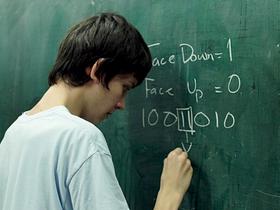 Face Down = 1
Face Up = 0
10011010